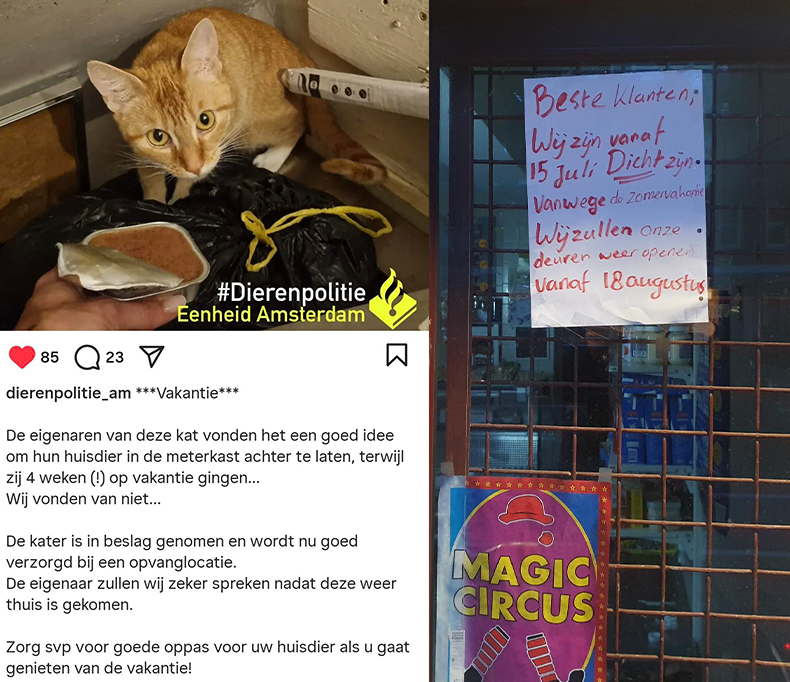 #Dierenpolitie
Eenheid Amsterdam
85 23
dierenpolitie_am ***Vakantie***
De eigenaren van deze kat vonden het een goed idee
om hun huisdier in de meterkast achter te laten, terwijl
zij 4 weken (!) op vakantie gingen...
Wij vonden van niet...
De kater is in beslag genomen en wordt nu goed
verzorgd bij een opvanglocatie.
De eigenaar zullen wij zeker spreken nadat deze weer
thuis is gekomen.
Zorg svp voor goede oppas voor uw huisdier als u gaat
genieten van de vakantie!
Beste klanten,
Wij zijn vanaf
15 Juli Dicht zijn.
Vanwege de zomervakantie
Wij zullen onze
deuren weer openen
vanaf 18 augustus
MAGIC
CIRCUS